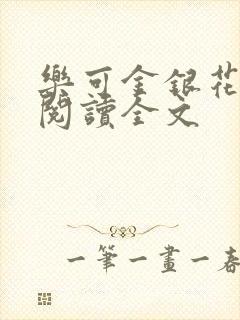 樂可金銀花
閱讀全文
一筆一畫一春